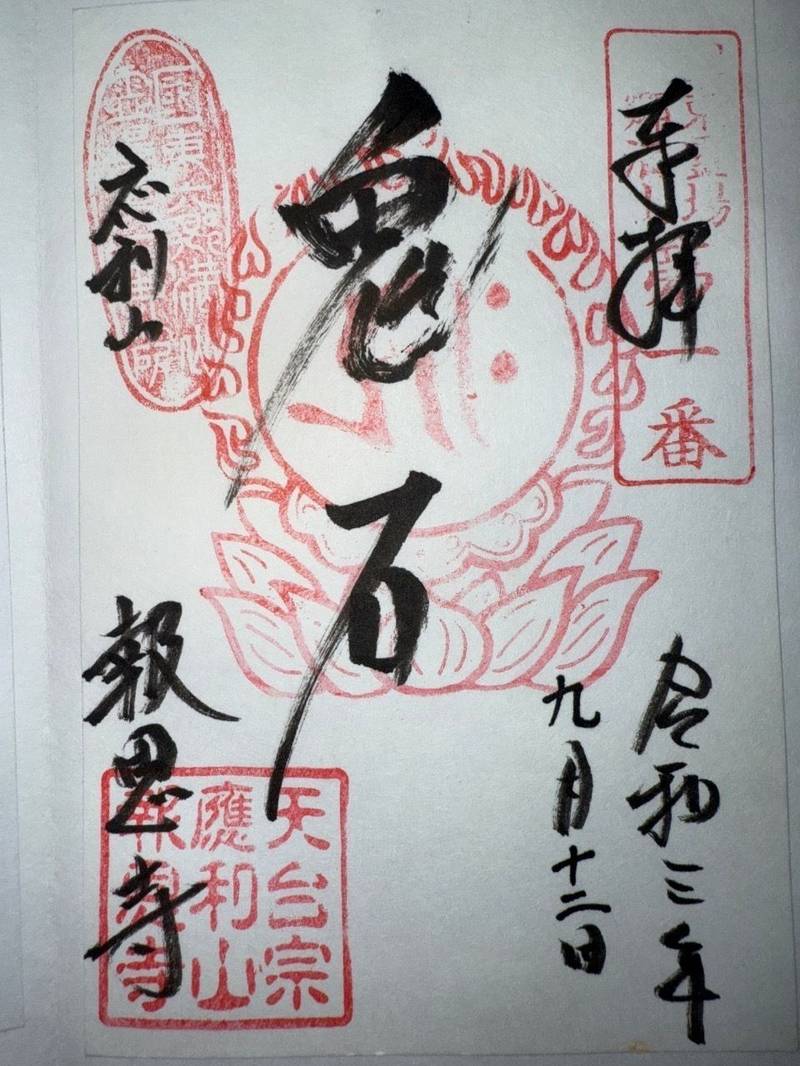 奉拝
一番
令和三年
九月十二日
鬼石
応利山
報恩寺
国東六郷満
天台宗
應利山
報恩寺